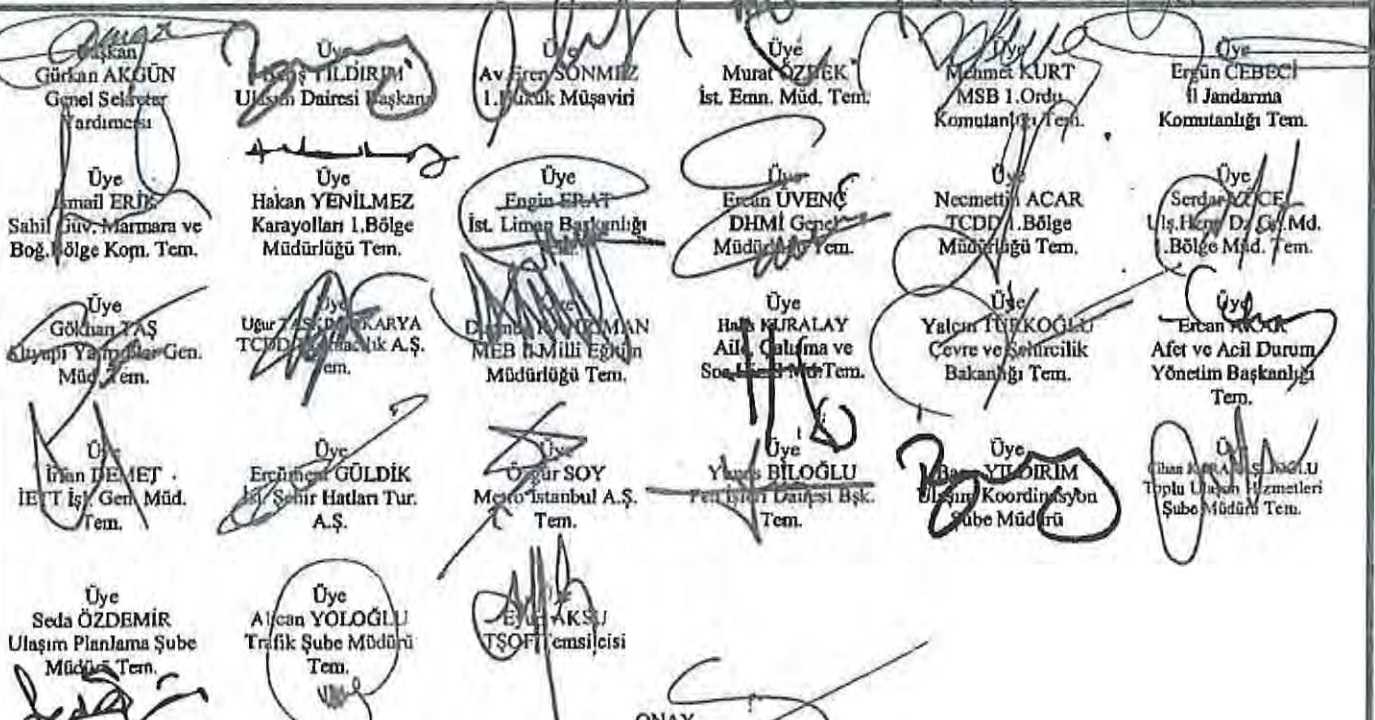 Başkan
Gürkan AKGÜN
Genel Sekreter
Yardımcısı
Üye
Barış YILDIRIM
Ulaşım Dairesi Başkanı
Üye
Av. Eren SÖNMEZ
1.Hukuk Müşaviri
Üye
Murat ÖZBEK
İst. Emn. Müd. Tem.
Üye
Mehmet KURT
MSB 1.Ordu
Komutanlığı Tem.
Üye
Ergün CEBECİ
İl Jandarma
Komutanlığı Tem.
Üye
İsmail
Sahil Güv. Marmara ve
Boğ. Bölge Kom. Tem.
Üye
Hakan YENİLMEZ
Karayolları 1.Bölge
Müdürlüğü Tem.
Üye
Engin ERAT
İst. Liman Başkanlığı
Üye
Ercan ÜVENÇ
DHMİ Genel
Müdürlüğü Tem.
Üye
Necmettin ACAR
TCDD 1.Bölge
Müdürlüğü Tem.
Üye
Serdar YÜCEL
Ulş.Hizm. Dz. Gn. Md.
1.Bölge Müd. Tem.
Üye
Gökhan TAŞ
Altyapı Yatırımlar Gen.
Müd. Tem.
Üye
Uğur
TCDD Taşımacılık A.Ş.
Tem.
Üye
KAHRIMAN
MEB İl Milli Eğitim
Müdürlüğü Tem.
Üye
KURALAY
Aile, Çalışma ve
Sos. Tem.
Üye
Yalçın TÜRKOĞLU
Çevre ve Şehircilik
Bakanlığı Tem.
Üye
Ercan AKAR
Afet ve Acil Durum
Yönetim Başkanlığı
Tem.
Üye
İrfan DEMET
İETT İşl. Gen. Müd.
Tem.
Üye
Ercüment GÜLDİK
Şehir Hatları Tur.
A.Ş.
Üye
Özgür SOY
Metro İstanbul A.Ş.
Tem.
Üye
Yunus BİLOĞLU
Fen İşleri Dairesi Bşk.
Tem.
Üye
Barış YILDIRIM
Ulaşım Koordinasyon
Şube Müdürü
Üye
Cihan
Toplu Ulaşım Hizmetleri
Şube Müdürü Tem.
Üye
Seda ÖZDEMİR
Ulaşım Planlama Şube
Müdürü Tem.
Üye
Alican YOLOĞLU
Trafik Şube Müdürü
Tem.
Üye
Eyüp AKSU
TŞOF Temsilcisi
ONAY